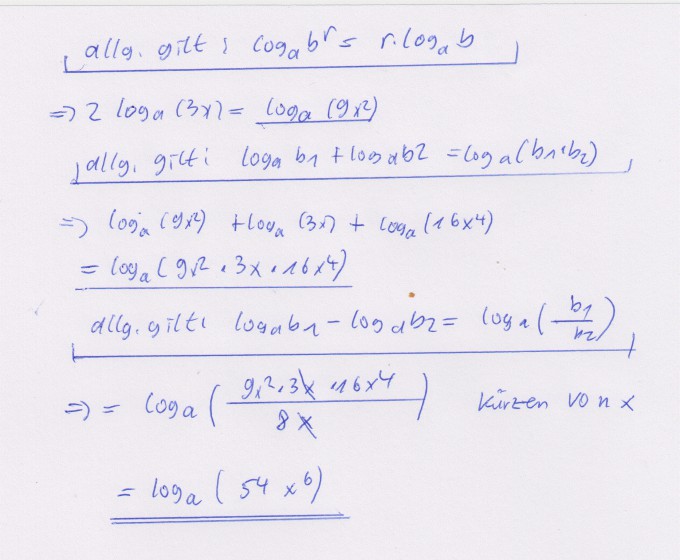 allg. gilt : logₐ bʳ = r·logₐ b
=> 2 logₐ (3x) = logₐ (9x²)
allg. gilt: logₐ b1 + logₐ b2 = logₐ(b1·b2)
=> logₐ (9x²) + logₐ (3x) + logₐ (16x⁴)
= logₐ (9x² · 3x · 16x⁴)
allg. gilt: logₐ b1 - logₐ b2 = logₐ (b1/b2)
=> = logₐ (9x²·3x·16x⁴ / 8x) Kürzen von x
= logₐ (54 x⁶)